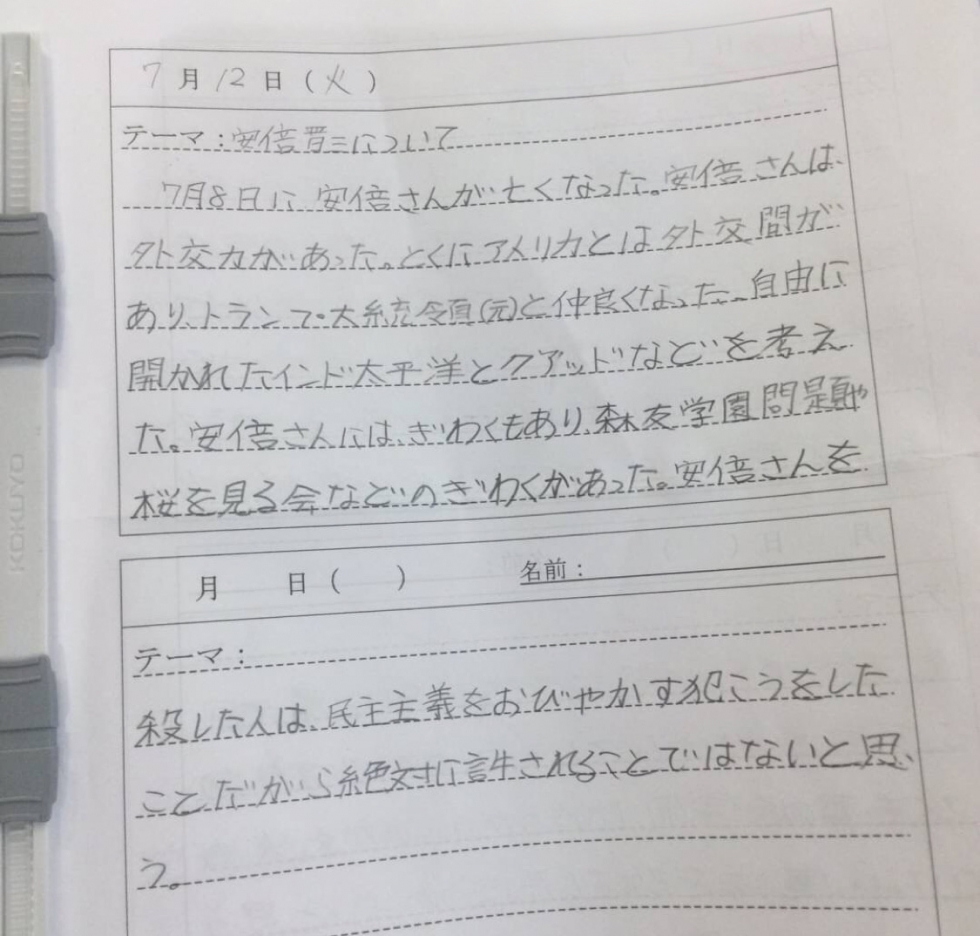 7月12日(火)
テーマ:安倍晋三について
7月8日に、安倍さんが亡くなった。安倍さんは、
外交力があった。とくにアメリカとは外交間が
あり、トランプ大統領(元)と仲良くなった。自由に
開かれたインド太平洋とクアッドなどを考え
た。安倍さんには、ぎわくもあり、森友学園問題や
桜を見る会などのぎわくがあった。安倍さんを
月 日( ) 名前:
テーマ:
殺した人は、民主主義をおびやかす犯こうをした
ことだがら絶対に許されることではないと思
う。
KOKUYO